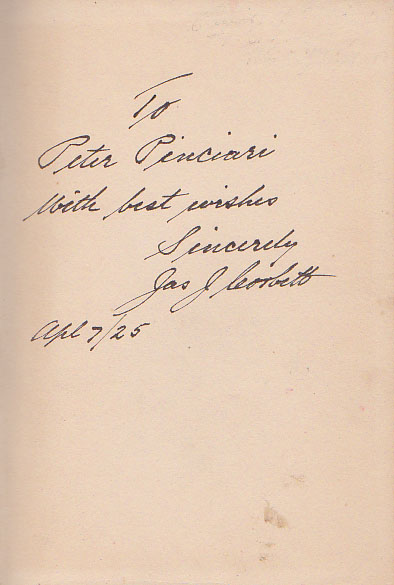 To
Peter Pinciari
With best wishes
Sincerely
Jas J Corbett
Apl 7/25